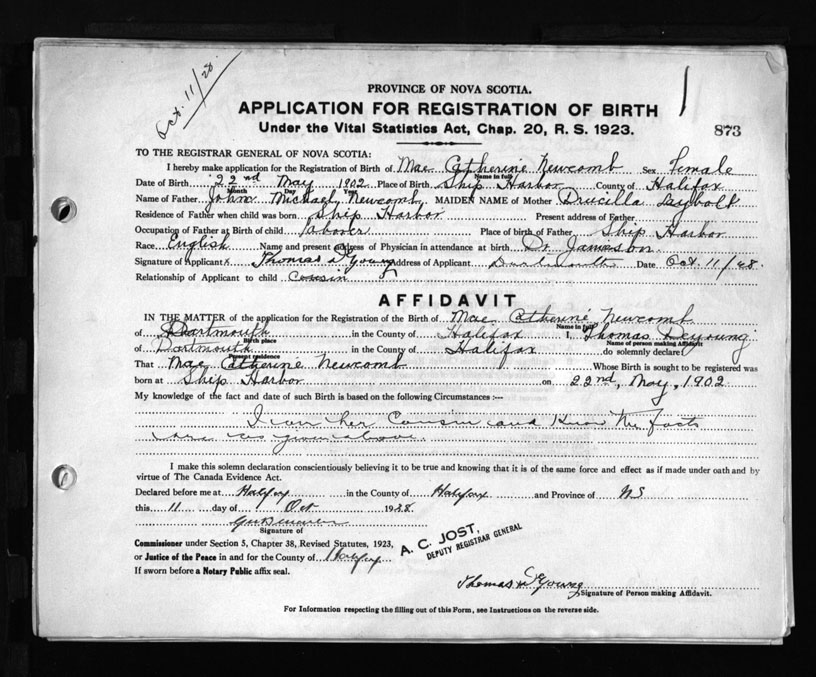 Oct. 11/28.
PROVINCE OF NOVA SCOTIA.
APPLICATION FOR REGISTRATION OF BIRTH
Under the Vital Statistics Act, Chap. 20, R. S. 1923.
873
TO THE REGISTRAR GENERAL OF NOVA SCOTIA:
I hereby make application for the Registration of Birth of Mae Catherine Newcomb Sex Female
Name in full
Date of Birth 22nd May 1902 Place of Birth Ship Harbor County of Halifax
Month Day Year
Name of Father John Michael Newcomb MAIDEN NAME of Mother Drucilla
Residence of Father when child was born Ship Harbor Present address of Father
Occupation of Father at Birth of child labourer Place of birth of Father Ship Harbor
Race English Name and present address of Physician in attendance at birth Dr Jameson
Signature of Applicant x Thomas DeYoung Address of Applicant Dartmouth Date Oct. 11/28.
Relationship of Applicant to child Cousin
AFFIDAVIT
IN THE MATTER of the application for the Registration of the Birth of Mae Catherine Newcomb
Name in full
of Dartmouth in the County of Halifax I, Thomas Deyoung
Birth place Name of person making Affidavit
of Dartmouth in the County of Halifax do solemnly declare:
Present residence
That Mae Catherine Newcomb Whose Birth is sought to be registered was
born at Ship Harbor on 22nd, May, 1902
My knowledge of the fact and date of such Birth is based on the following Circumstances :—
I am her Cousin and know the facts
are as given above.
I make this solemn declaration conscientiously believing it to be true and knowing that it is of the same force and effect as if made under oath and by
virtue of The Canada Evidence Act.
Declared before me at Halifax in the County of Halifax and Province of NS
this 11 day of Oct 1928.
Signature of
Commissioner under Section 5, Chapter 38, Revised Statutes, 1923,
or Justice of the Peace in and for the County of Halifax
If sworn before a Notary Public affix seal.
A. C. JOST,
DEPUTY REGISTRAR GENERAL
Thomas DeYoung
Signature of Person making Affidavit.
For Information respecting the filling out of this Form, see Instructions on the reverse side.